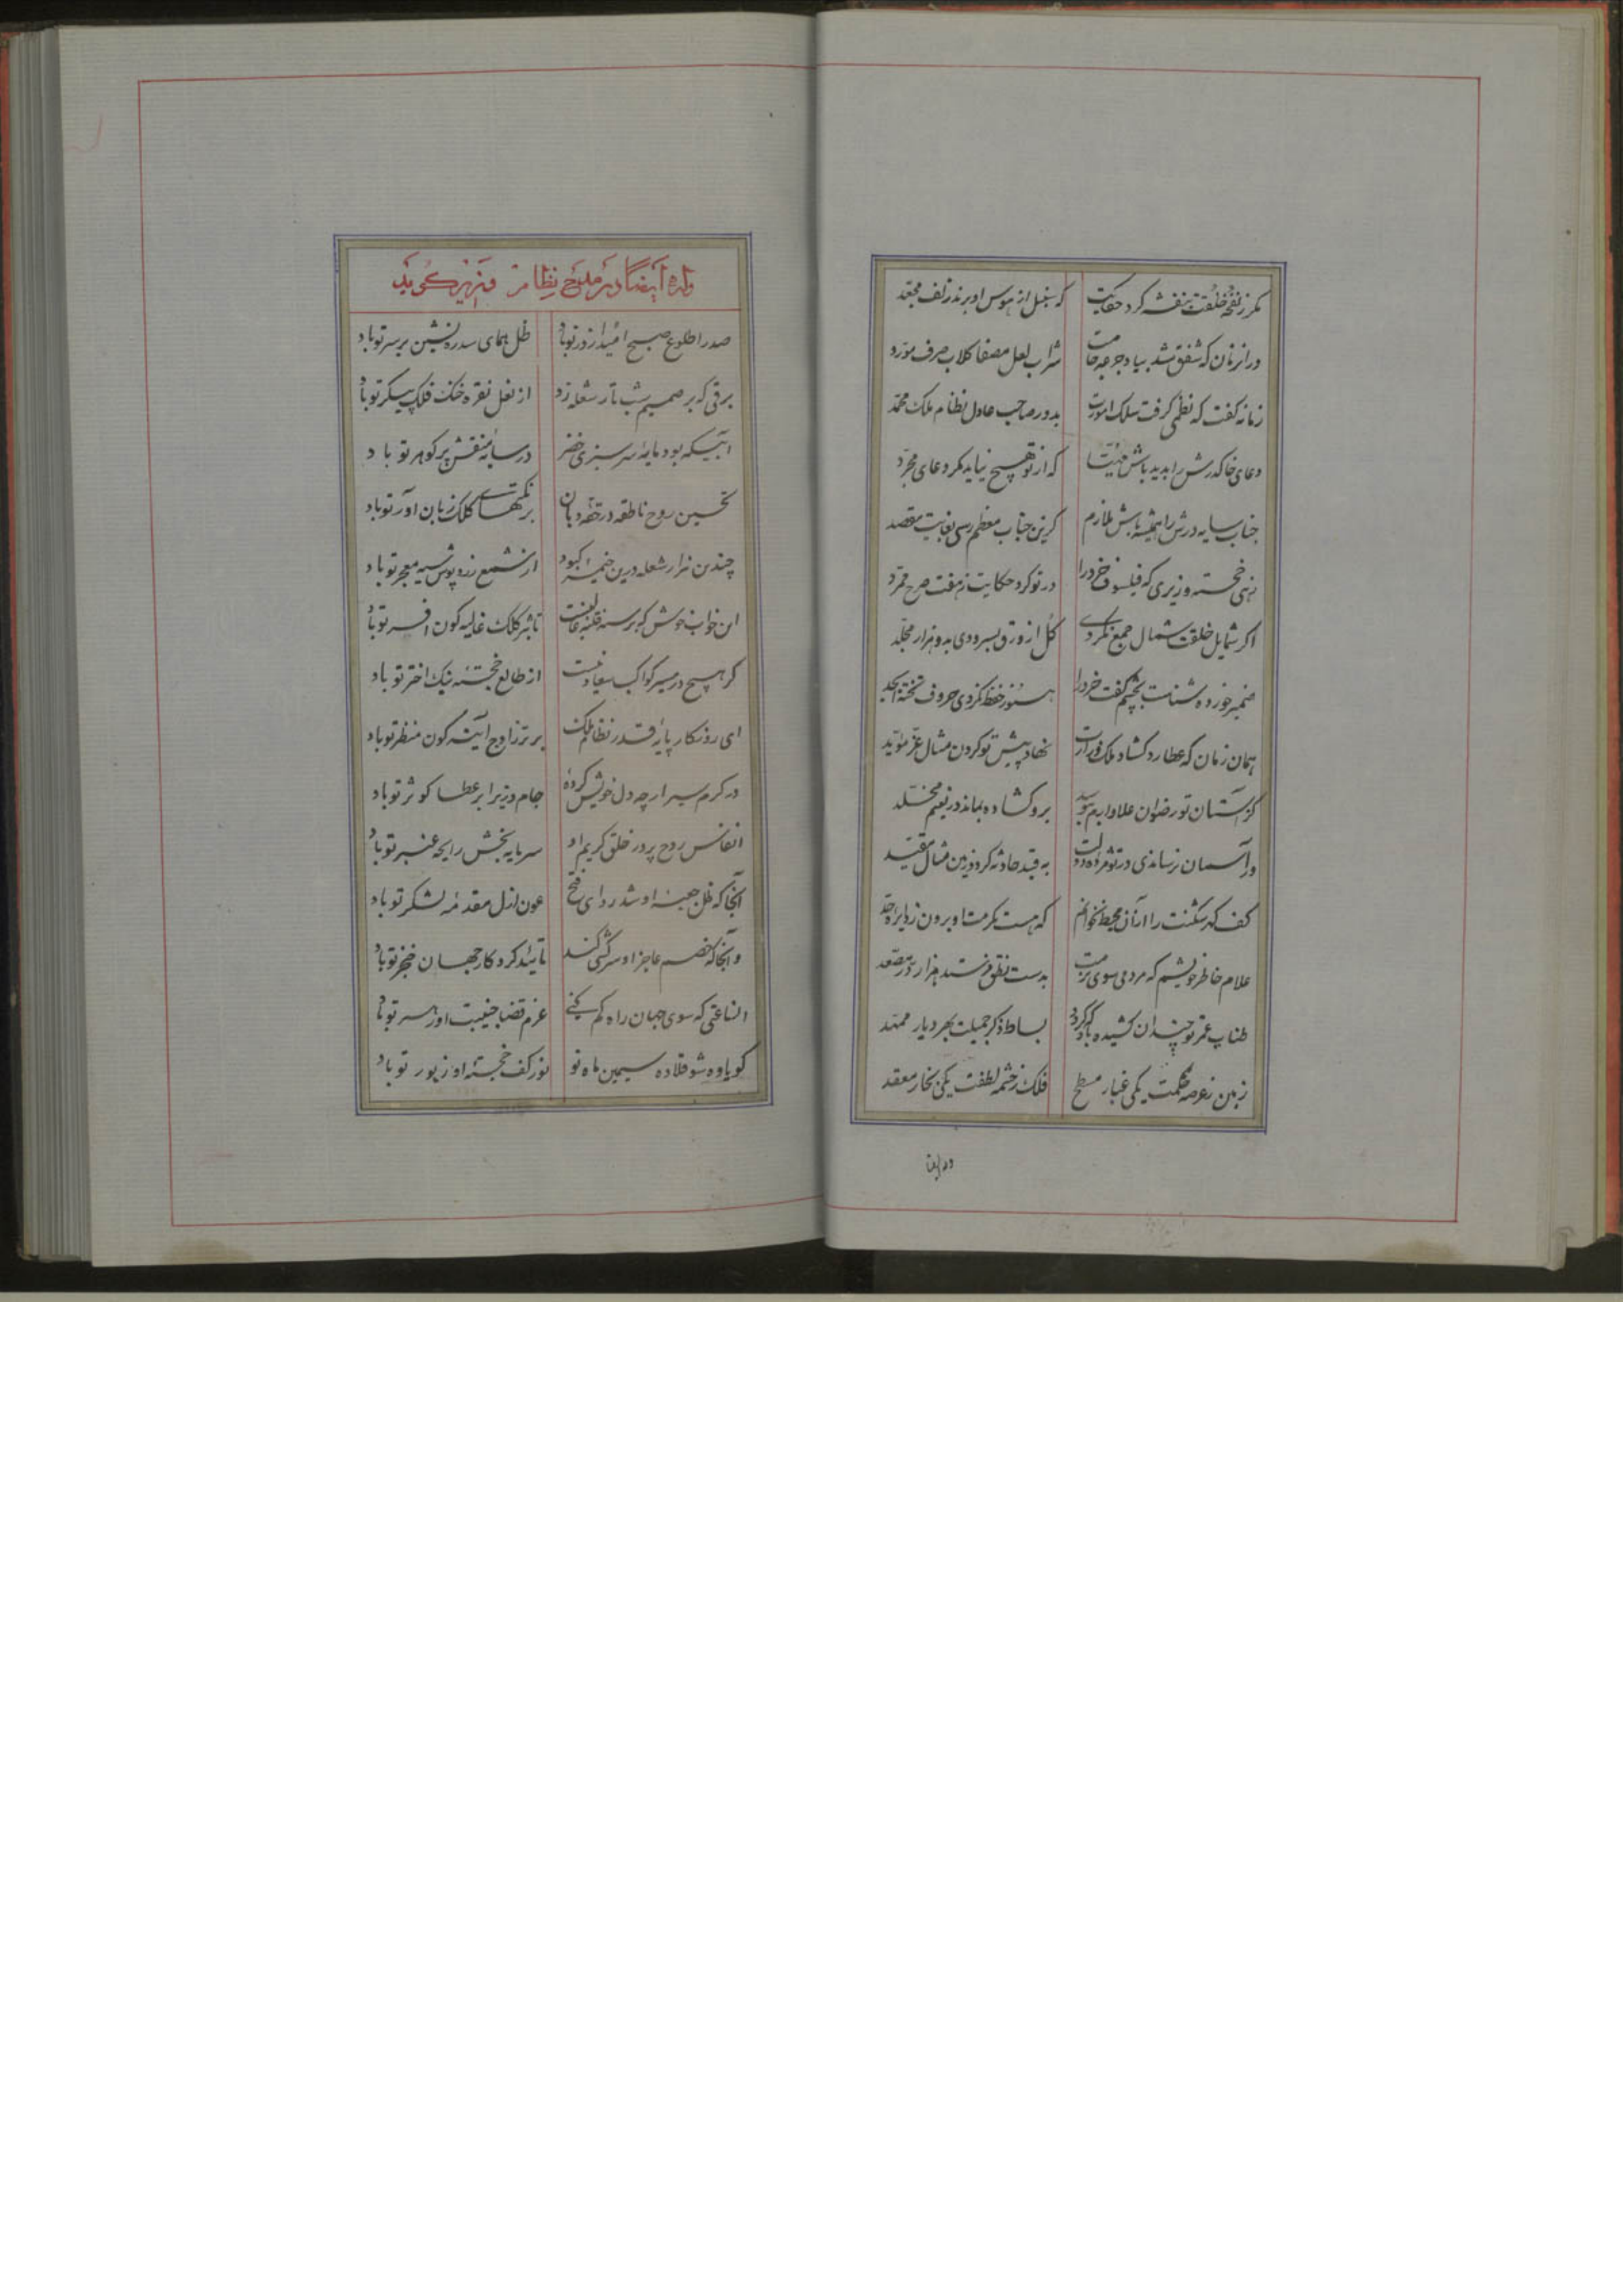 مکر ز نفحه خلقت بنفشه کرد حکایت که سنبل از هوس او برند زلف مجعد
در انزمان که شفق شد بیاد جرعه جامت شراب لعل مصفا کلاب صرف مورد
زمانه کفت که نظمی کرفت سلک امورت بدور صاحب عادل نظام ملک محمد
دعای خاکدرش را بدید باش که از تو هیچ نیاید مکر دعای مجرد
جناب سایه درش را همیشه باش ملازم کزین جناب معظم رسی بغایت مقصد
زهی خجسته وزیری که فیلسوف خرد را در تو کرد حکایت ز هفت صرح ممرد
اکر شمایل خلقت شمال جمع نکردی کل از ورق بسرودی به هزار مجلد
ضمیر خورده شناست بچشم کفت خرد را هنوز حفظ نکردی حروف تختهٔ ابجد
همان زمان که عطارد کشاد ملک نهاد پیش تو کردون مثال عز مؤید
کز آستان تو رضوان برو کشاده نماند در نعیم مخلد
ور آسمان نرساندی به قید حادثه کردد زمین مثال مقید
کف کهر شکنت را از آن محیط نخوانم که هست مکرمت او برون ز دایره حد
غلام خاطر خویشم که هر دمی سوی بزمت بدست نطق فرستد هزار در منضد
طناب عمر تو چندان کشیده باد که کردد بساط ذکر جمیلت بهر دیار ممهد
زمین ز عرصه حکمت یکی غبار مسطح فلک ز چشمه لطفت یکی بخار معقد
وله ایضا در مدیح نظام گوید
صدرا طلوع صبح امید از در تو باد ظل همای سدره نشین بر سر تو باد
برقی که بر صمیم شب تار شعله زد از نعل نقره خنک فلک پیکر تو باد
آبیکه بود مایهٔ سر سبزی خضر در سایهٔ پر کوهر تو باد
تحسین روح ناطقه در حقهٔ دهان بر نکتهای کلک زبان آور تو باد
چندین هزار شعله درین خیمهٔ کبود از شمع زرد پوش سیه معجر تو باد
این خواب خوش که بر سر فتنه غالبست تاثیر کلک غالیه کون افسر تو باد
کر هیچ در مسیر کواکب سعادتیست از طالع خجستهٔ نیک اختر تو باد
ای روزکار پایهٔ قدر نظام ملک برتر ز اوج آینه کون منظر تو باد
در کرم سیر ار چه دل خویش کردهٔ جام وزیر ابر عطا کوثر تو باد
انفاس روح پرور خلق کریم او سرمایه بخش رایحه عنبر تو باد
آنجا که ظل او شد ردای فتح عون ازل مقدمهٔ لشکر تو باد
و آنجا که خصم عاجز او سرکشی کند تایید کردکار جهان خنجر تو باد
الساعتی که سوی جهان راه کم کنی عزم قضا جنیبت او رهبر تو باد
کو یاوه شو قلاده سیمین ماه نو نور کف خجستهٔ او زیور تو باد